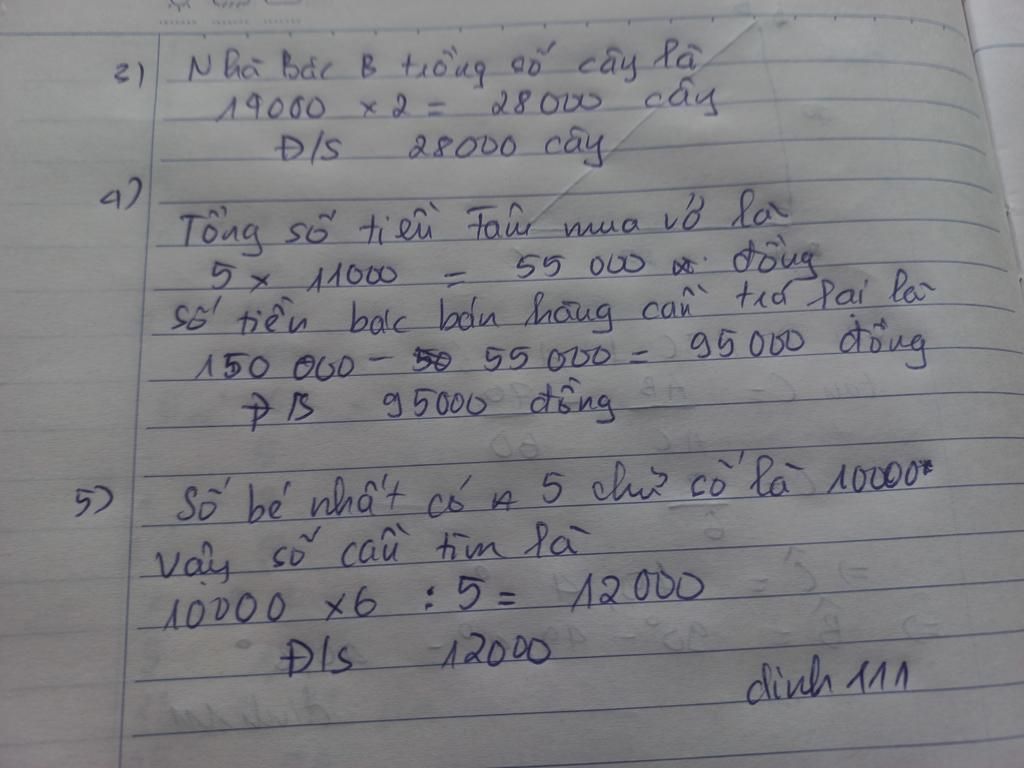 3) Nhà Bác B trồng số cây là
14000 x 2 = 28000 cây
Đ/S 28000 cây
4)
Tổng số tiền Tâm mua vở là
5 x 11000 = 55 000 đồng
Số tiền bác bán hàng cần trả lại là
150 000 - 55 000 = 95 000 đồng
Đ/S 95000 đồng
5) Số bé nhất có 5 chữ số là 10000
Vậy số cần tìm là
10000 x 6 : 5 = 12000
Đ/S 12000
dinh 111